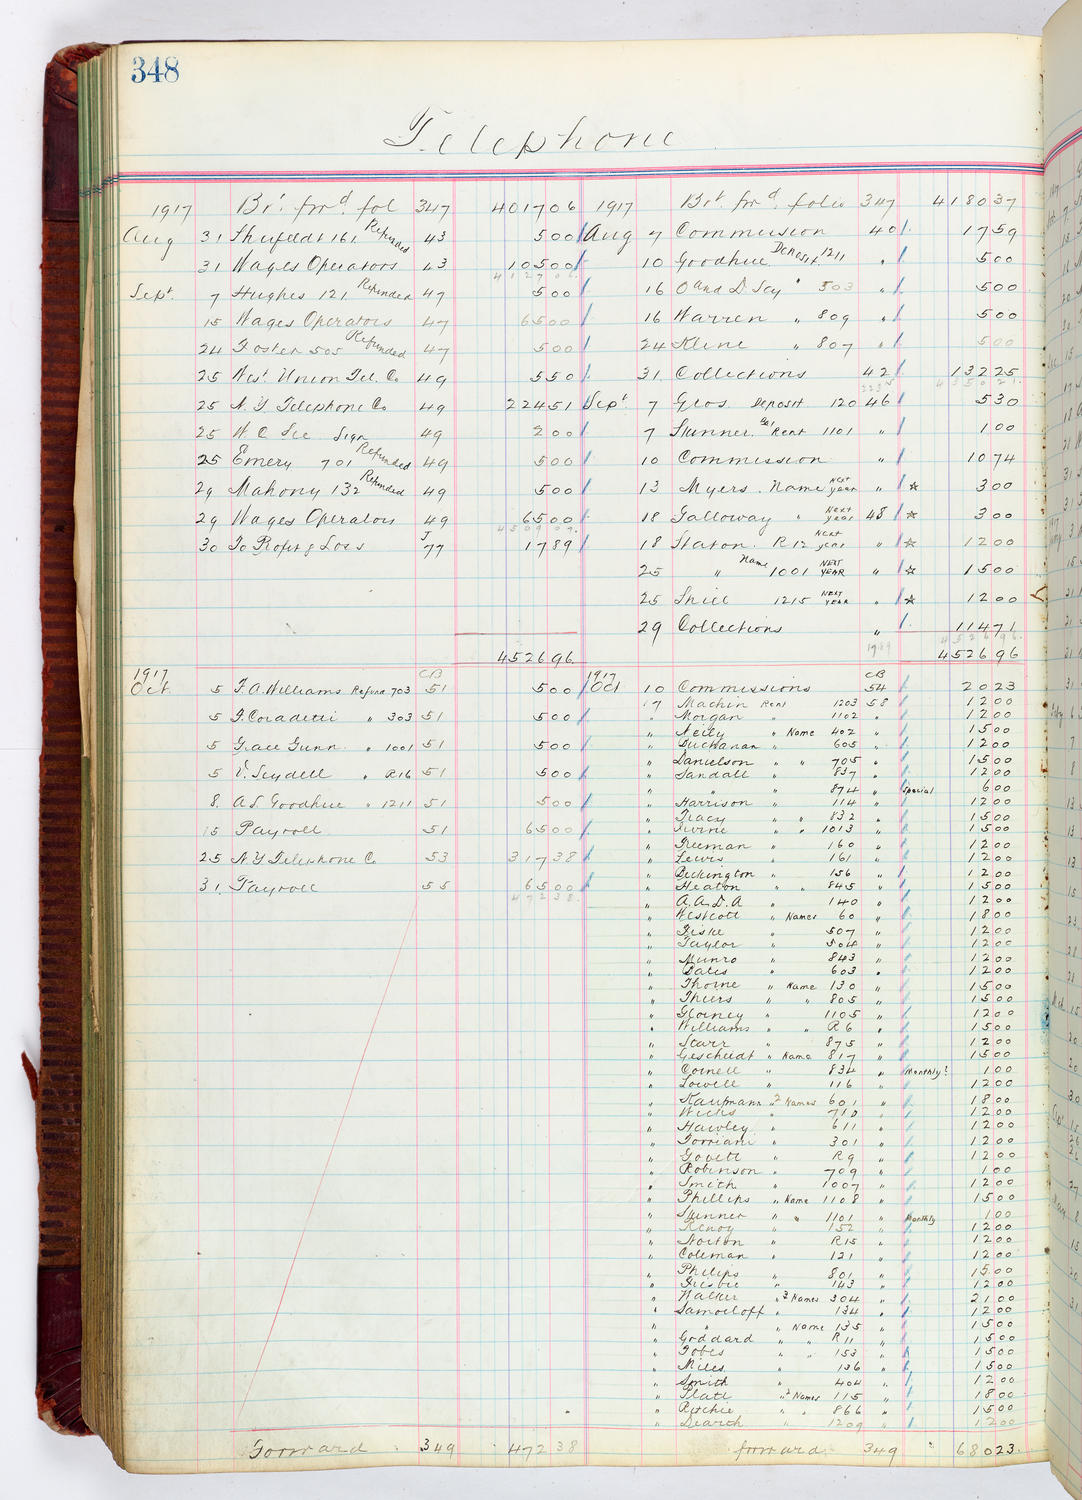 348
Telephone
1917 Brt. forwd. fol 347 4017 06
Aug 31 Shufeldt 161 Refunded 43 5 00
31 Wages Operators 43 105 00
4127 06
Sept. 7 Hughes 121 Refunded 47 5 00
15 Wages Operators 47 65 00
24 Foster 505 Refunded 47 5 00
25 West. Union Tel. Co 49 5 50
25 N.Y. Telephone Co 49 224 51
25 W C See Sign 49 2 00
25 Emery 701 Refunded 49 5 00
29 Mahony 132 Refunded 49 5 00
29 Wages Operators 49 65 00
4509 07
30 To Profit & Loss J 77 17 89
4526 96
1917 CB
Oct. 5 F.A. Williams Refund 703 51 5 00
5 F. Coradetti " 303 51 5 00
5 Grace Gunn " 1001 51 5 00
5 V. Seydell " R16 51 5 00
8 A L Goodhue " 1211 51 5 00
15 Payroll 51 65 00
25 N Y Telephone Co 53 317 38
31 Payroll 55 65 00
472 38
Forward 349 472 38
1917 Brt. forwd. folio 347 4180 37
Aug 7 Commission 40 17 59
10 Goodhue Deposit 1211 " 5 00
16 O and D Scy " 503 " 5 00
16 Warren " 809 " 5 00
24 Kline " 807 " 5 00
31 Collections 42 132 25
4350 21
Sept 7 Geos. Deposit 120 46 5 30
7 Sumner Bal Rent 1101 " 1 00
10 Commission " 10 74
13 Myers. Name Next year " ☆ 3 00
18 Galloway " Next year 48 ☆ 3 00
18 Staton. R12 Next year " ☆ 12 00
25 " Name 1001 NEXT YEAR " ☆ 15 00
25 Shill 1215 NEXT YEAR " ☆ 12 00
29 Collections " 114 71
4526 96
17 89
4526 96
1917 CB
Oct 10 Commissions 54 20 23
17 Machin Rent 1203 58 12 00
" Morgan " 1102 " 12 00
" Neily " Name 402 " 15 00
" Buchanan " 605 " 12 00
" Danielson " " 705 " 15 00
" Sandall " 837 " 12 00
" " " 874 " Special 6 00
" Harrison " 114 " 12 00
" Tracy " " 832 " 15 00
" Irvine " " 1013 " 15 00
" Freeman " 160 " 12 00
" Lewis " 161 " 12 00
" Bickington " 156 " 12 00
" Heaton " " 845 " 15 00
" A.A.D.A " 140 " 12 00
" Westcott " Names 60 " 18 00
" Fiske " 507 " 12 00
" Taylor " 504 " 12 00
" Munro " 843 " 12 00
" Dales " 603 " 12 00
" Thorne " Name 130 " 15 00
" Thiers " " 805 " 15 00
" Gloiney " 1105 " 12 00
" Williams " " R6 " 15 00
" Starr " 875 " 12 00
" Gescheidt " Name 817 " 15 00
" Cornell " 834 " Monthly! 1 00
" Lowell " 116 " 12 00
" Kaufmann " 2 Names 601 " 18 00
" Wicks " 710 " 12 00
" Hawley " 611 " 12 00
" Torriani " 301 " 12 00
" Govett " R9 " 12 00
" Robinson " 709 " 1 00
" Smith " 1007 " 12 00
" Phillips " Name 1108 " 15 00
" Sumner " " 1101 " Monthly 1 00
" Kenoy " 152 " 12 00
" Norton " R15 " 12 00
" Coleman " 121 " 12 00
" Philips " 801 " 15 00
" Frisbie " 143 " 12 00
" Walker " 3 Names 304 " 21 00
" Samoeloff " 134 " 12 00
" " " Name 135 " 15 00
" Goddard " " R11 " 15 00
" Fobes " " 153 " 15 00
" Miles " 136 " 15 00
" Smith " 404 " 12 00
" Platt " 2 Names 115 " 18 00
" Ritchie " " 866 " 15 00
" Dearth " 1209 " 12 00
forward 349 680 23